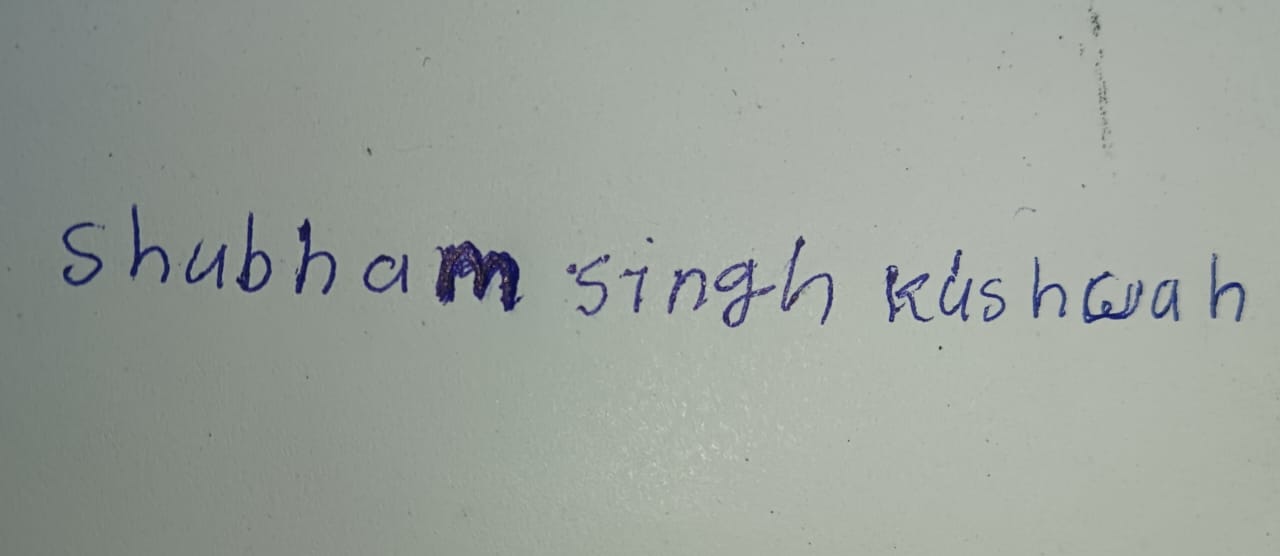 Shubham singh kushwah